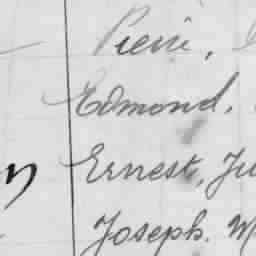 Pierre,
Edmond,
Ernest, Ju
Joseph. M